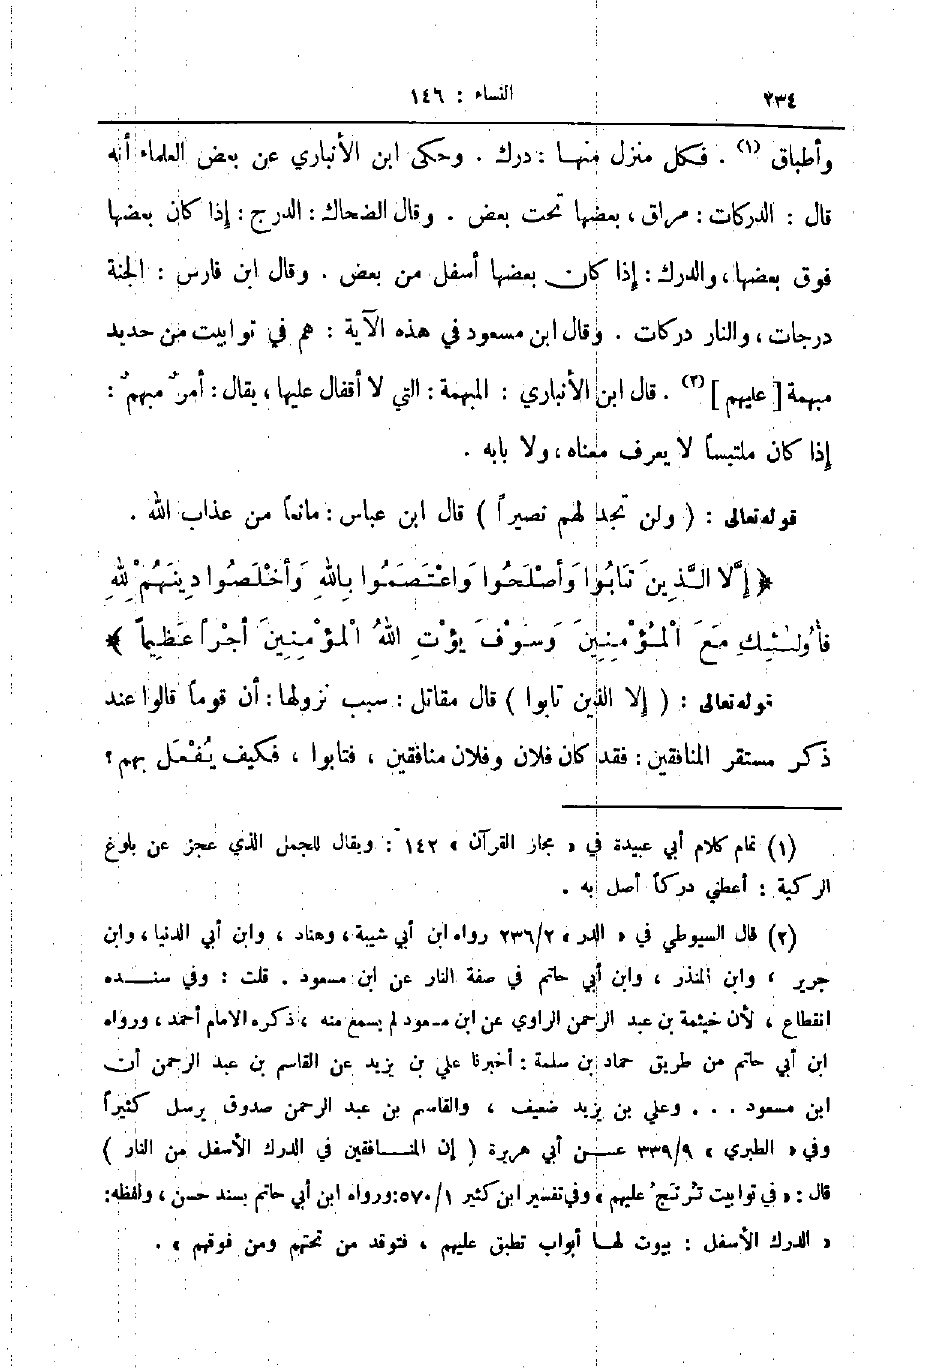 ٢٣٤
النساء : ١٤٦
وأطباق (١) . فكل منزل منها : درك . وحكى ابن الأنباري عن بعض العلماء أنه
قال : الدركات : مراق ، بعضها تحت بعض . وقال الضحاك : الدرج : إذا كان بعضها
فوق بعضها ، والدرك : إذا كان بعضها أسفل من بعض . وقال ابن فارس : الجنة
درجات ، والنار دركات . وقال ابن مسعود في هذه الآية : هم في توابيت من حديد
مبهمة [ عليهم ] (٢) . قال ابن الأنباري : المبهمة : التي لا أقفال عليها ، يقال : أمرٌ مبهمٌ :
إذا كان ملتبساً لا يعرف معناه ، ولا بابه .
قوله تعالى : ( ولن تجد لهم نصيراً ) قال ابن عباس : مانعاً من عذاب الله .
﴿ إِلَّا الَّذِينَ تَابُوا وَأَصْلَحُوا وَاعْتَصَمُوا بِاللهِ وَأَخْلَصُوا دِينَهُمْ لِلهِ
فَأُولَـٰئِكَ مَعَ الْمُؤْمِنِينَ وَسَوْفَ يُؤْتِ اللهُ الْمُؤْمِنِينَ أَجْراً عَظِيماً ﴾
قوله تعالى : ( إلا الذين تابوا ) قال مقاتل : سبب نزولها : أن قوماً قالوا عند
ذكر مستقر المنافقين : فقد كان فلان وفلان منافقين ، فتابوا ، فكيف يُفْعَل بهم ؟
(١) تمام كلام أبي عبيدة في « مجاز القرآن » ١٤٢ : ويقال للجمل الذي عجز عن بلوغ
الركية : أعطني دركاً أصل به .
(٢) قال السيوطي في « الدر » ٢٣٦/٢ رواه ابن أبي شيبة ، وهناد ، وابن أبي الدنيا ، وابن
جرير ، وابن المنذر ، وابن أبي حاتم في صفة النار عن ابن مسعود . قلت : وفي سنده
انقطاع ، لأن خيثمة بن عبد الرحمن الراوي عن ابن مسعود لم يسمع منه ، ذكره الامام أحمد ، ورواه
ابن أبي حاتم من طريق حماد بن سلمة : أخبرنا علي بن يزيد عن القاسم بن عبد الرحمن أن
ابن مسعود . . . وعلي بن يزيد ضعيف ، والقاسم بن عبد الرحمن صدوق يرسل كثيراً
وفي « الطبري » ٣٣٩/٩ عن أبي هريرة ( إن المنافقين في الدرك الأسفل من النار )
قال : « في توابيت تُرتَجُ عليهم » وفي تفسير ابن كثير ٥٧٠/١ : ورواه ابن أبي حاتم بسند حسن ، ولفظه :
« الدرك الأسفل : بيوت لها أبواب تطبق عليهم ، فتوقد من تحتهم ومن فوقهم » .